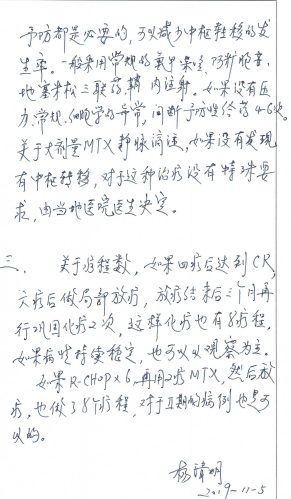 予防都是必要的，可以减少中枢转移的发
生率。一般采用常规的氨甲
地塞米松三联药鞘内注射。如果没有压
力、常规、细胞学的异常，间断予防性给药4-6次。
关于大剂量MTX静脉滴注，如果没有发现
有中枢转移，对于这种治疗没有特殊要
求，由当地医院医生决定。
三、关于疗程数，如果四疗后达到CR，
六疗后做局部放疗，放疗结束后三个月再
行巩固化疗2次，这样化疗也有8疗程，
如果病情持续稳定，也可以以观察为主。
如果R-CHOP×6，再用2疗MTX，然后放
疗，也做了8个疗程，对于II期的病例也是可
以的。
2019-11-5